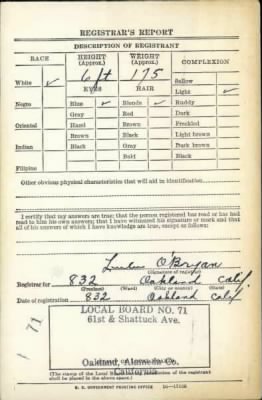 REGISTRAR'S REPORT
DESCRIPTION OF REGISTRANT
RACE HEIGHT (Approx.) WEIGHT (Approx.) COMPLEXION
6 ft 175 Sallow
White ✓ EYES HAIR Light ✓
Negro Blue ✓ Blonde ✓ Ruddy
Gray Red Dark
Oriental Hazel Brown Freckled
Brown Black Light brown
Indian Black Gray Dark brown
Bald Black
Filipino
Other obvious physical characteristics that will aid in identification
I certify that my answers are true; that the person registered has read or has had
read to him his own answers; that I have witnessed his signature or mark and that
all of his answers of which I have knowledge are true, except as follows:
O'Bryan
(Signature of registrar)
Registrar for 832 Oakland Calif.
(Precinct) (Ward) (City or county) (State)
Date of registration 832 Oakland Calif
71
LOCAL BOARD NO. 71
61st & Shattuck Ave.
Oakland, Alameda Co.
California
(The stamp of the Local Board of the registrant
shall be placed in the above space.)
U. S. GOVERNMENT PRINTING OFFICE